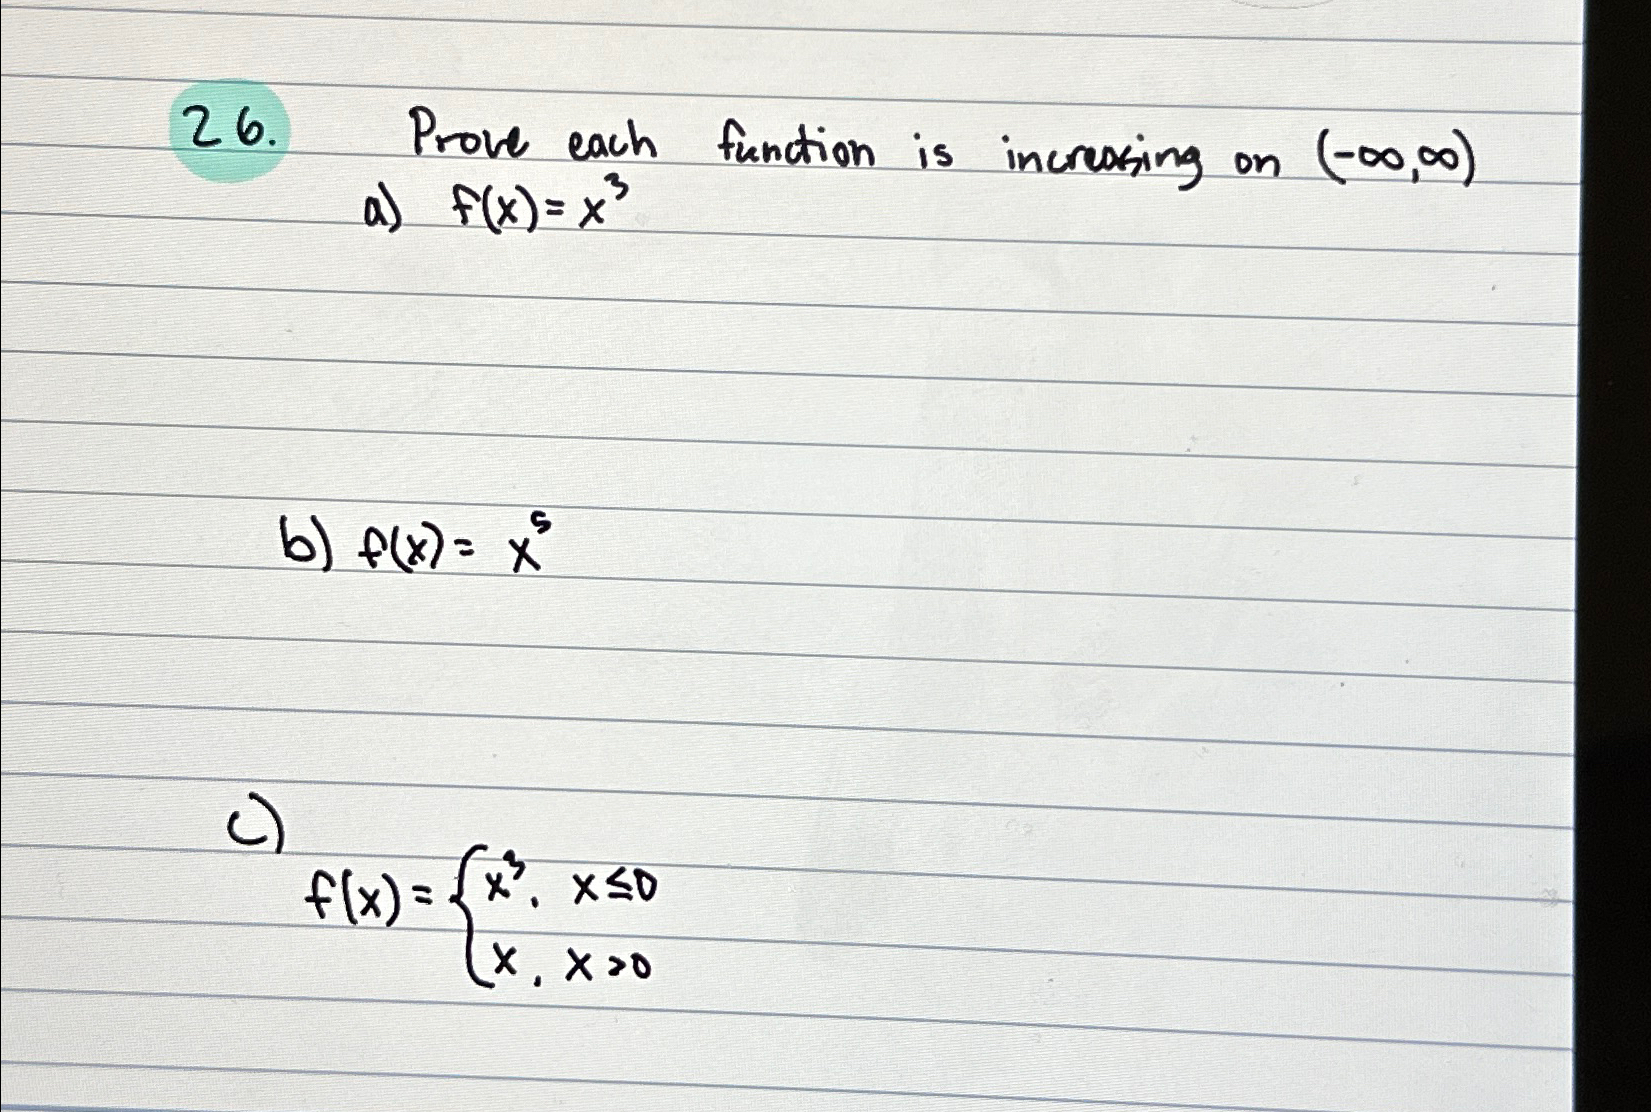 26. Prove each function is increasing on (-∞,∞)
a) f(x)= x³
b) f(x)= x⁵
c)
f(x)= { x³, x≤0
x, x>0